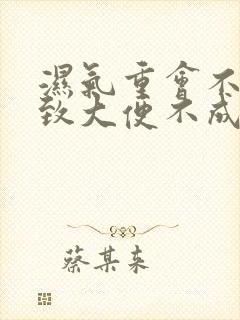 濕氣重會不
致大便不成
蔡某來